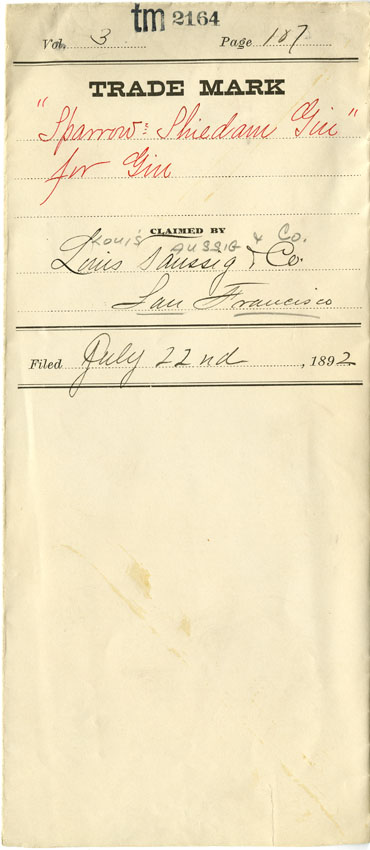 tm 2164
Vol. 3 Page 187
TRADE MARK
"Sparrow: Shiedam Gin"
for Gin
CLAIMED BY
LOUIS AUSSIG & Co.
Louis Taussig & Co.
San Francisco
Filed July 22nd, 1892